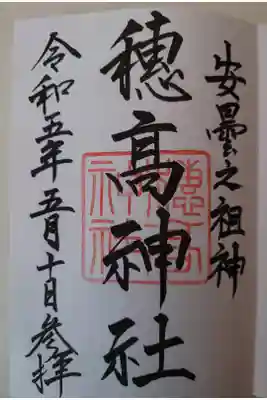 安曇之祖神
穂高神社
令和五年五月十日参拝